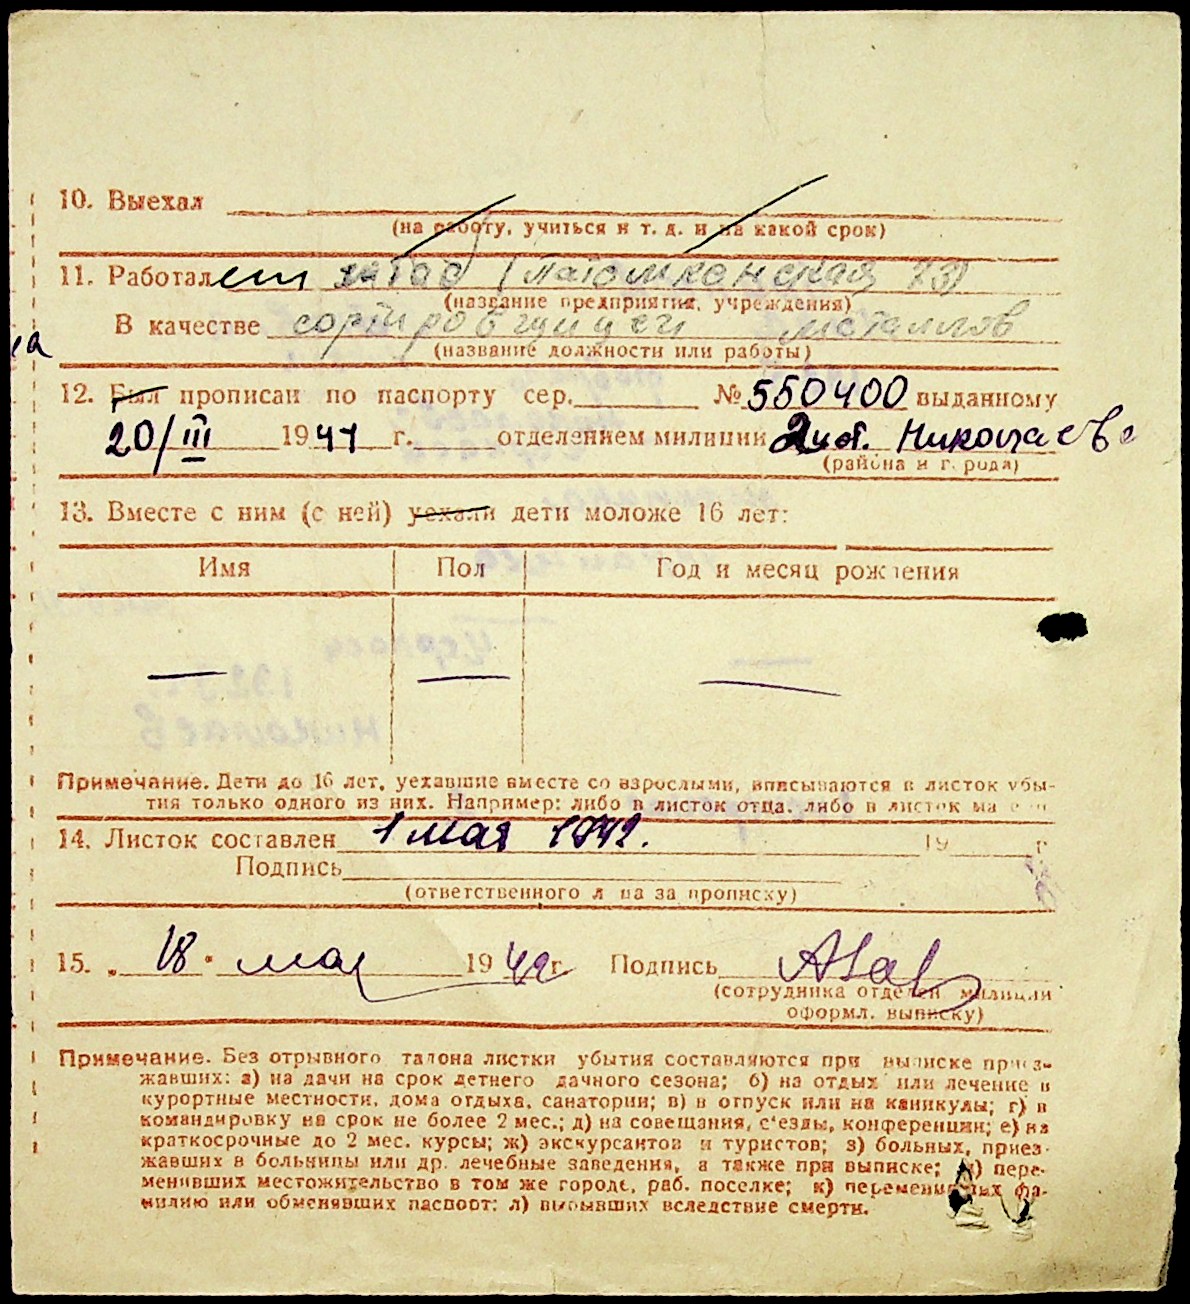 10. Выехал
(на работу, учиться и т. д. и на какой срок)
11. Работает
(название предприятия, учреждения)
В качестве сортировщицей металлов
(название должности или работы)
12. Был прописан по паспорту сер. № 550400 выданному
20/III 1941 г. отделением милиции 2 Николаев
(района и города)
13. Вместе с ним (с ней) уехали дети моложе 16 лет:
Имя Пол Год и месяц рождения
— — —
Примечание. Дети до 16 лет, уехавшие вместе со взрослыми, вписываются в листок убы-
тия только одного из них. Например: либо в листок отца, либо в листок
14. Листок составлен 1 мая 1942. 19 г.
Подпись
(ответственного лица за прописку)
15. „18" мая 1942 г. Подпись
(сотрудника отделен милиции
оформл. выписку)
Примечание. Без отрывного талона листки убытия составляются при выписке приез-
жавших: а) на дачи на срок летнего дачного сезона; б) на отдых или лечение в
курортные местности, дома отдыха, санатории; в) в отпуск или на каникулы; г) в
командировку на срок не более 2 мес.; д) на совещания, с'езды, конференции; е) на
краткосрочные до 2 мес. курсы; ж) экскурсантов и туристов; з) больных, приез-
жавших в больницы или др. лечебные заведения, а также при выписке; и) пере-
менивших местожительство в том же городе, раб. поселке; к) переменивших фа-
милию или обменявших паспорт; л) выбывших вследствие смерти.